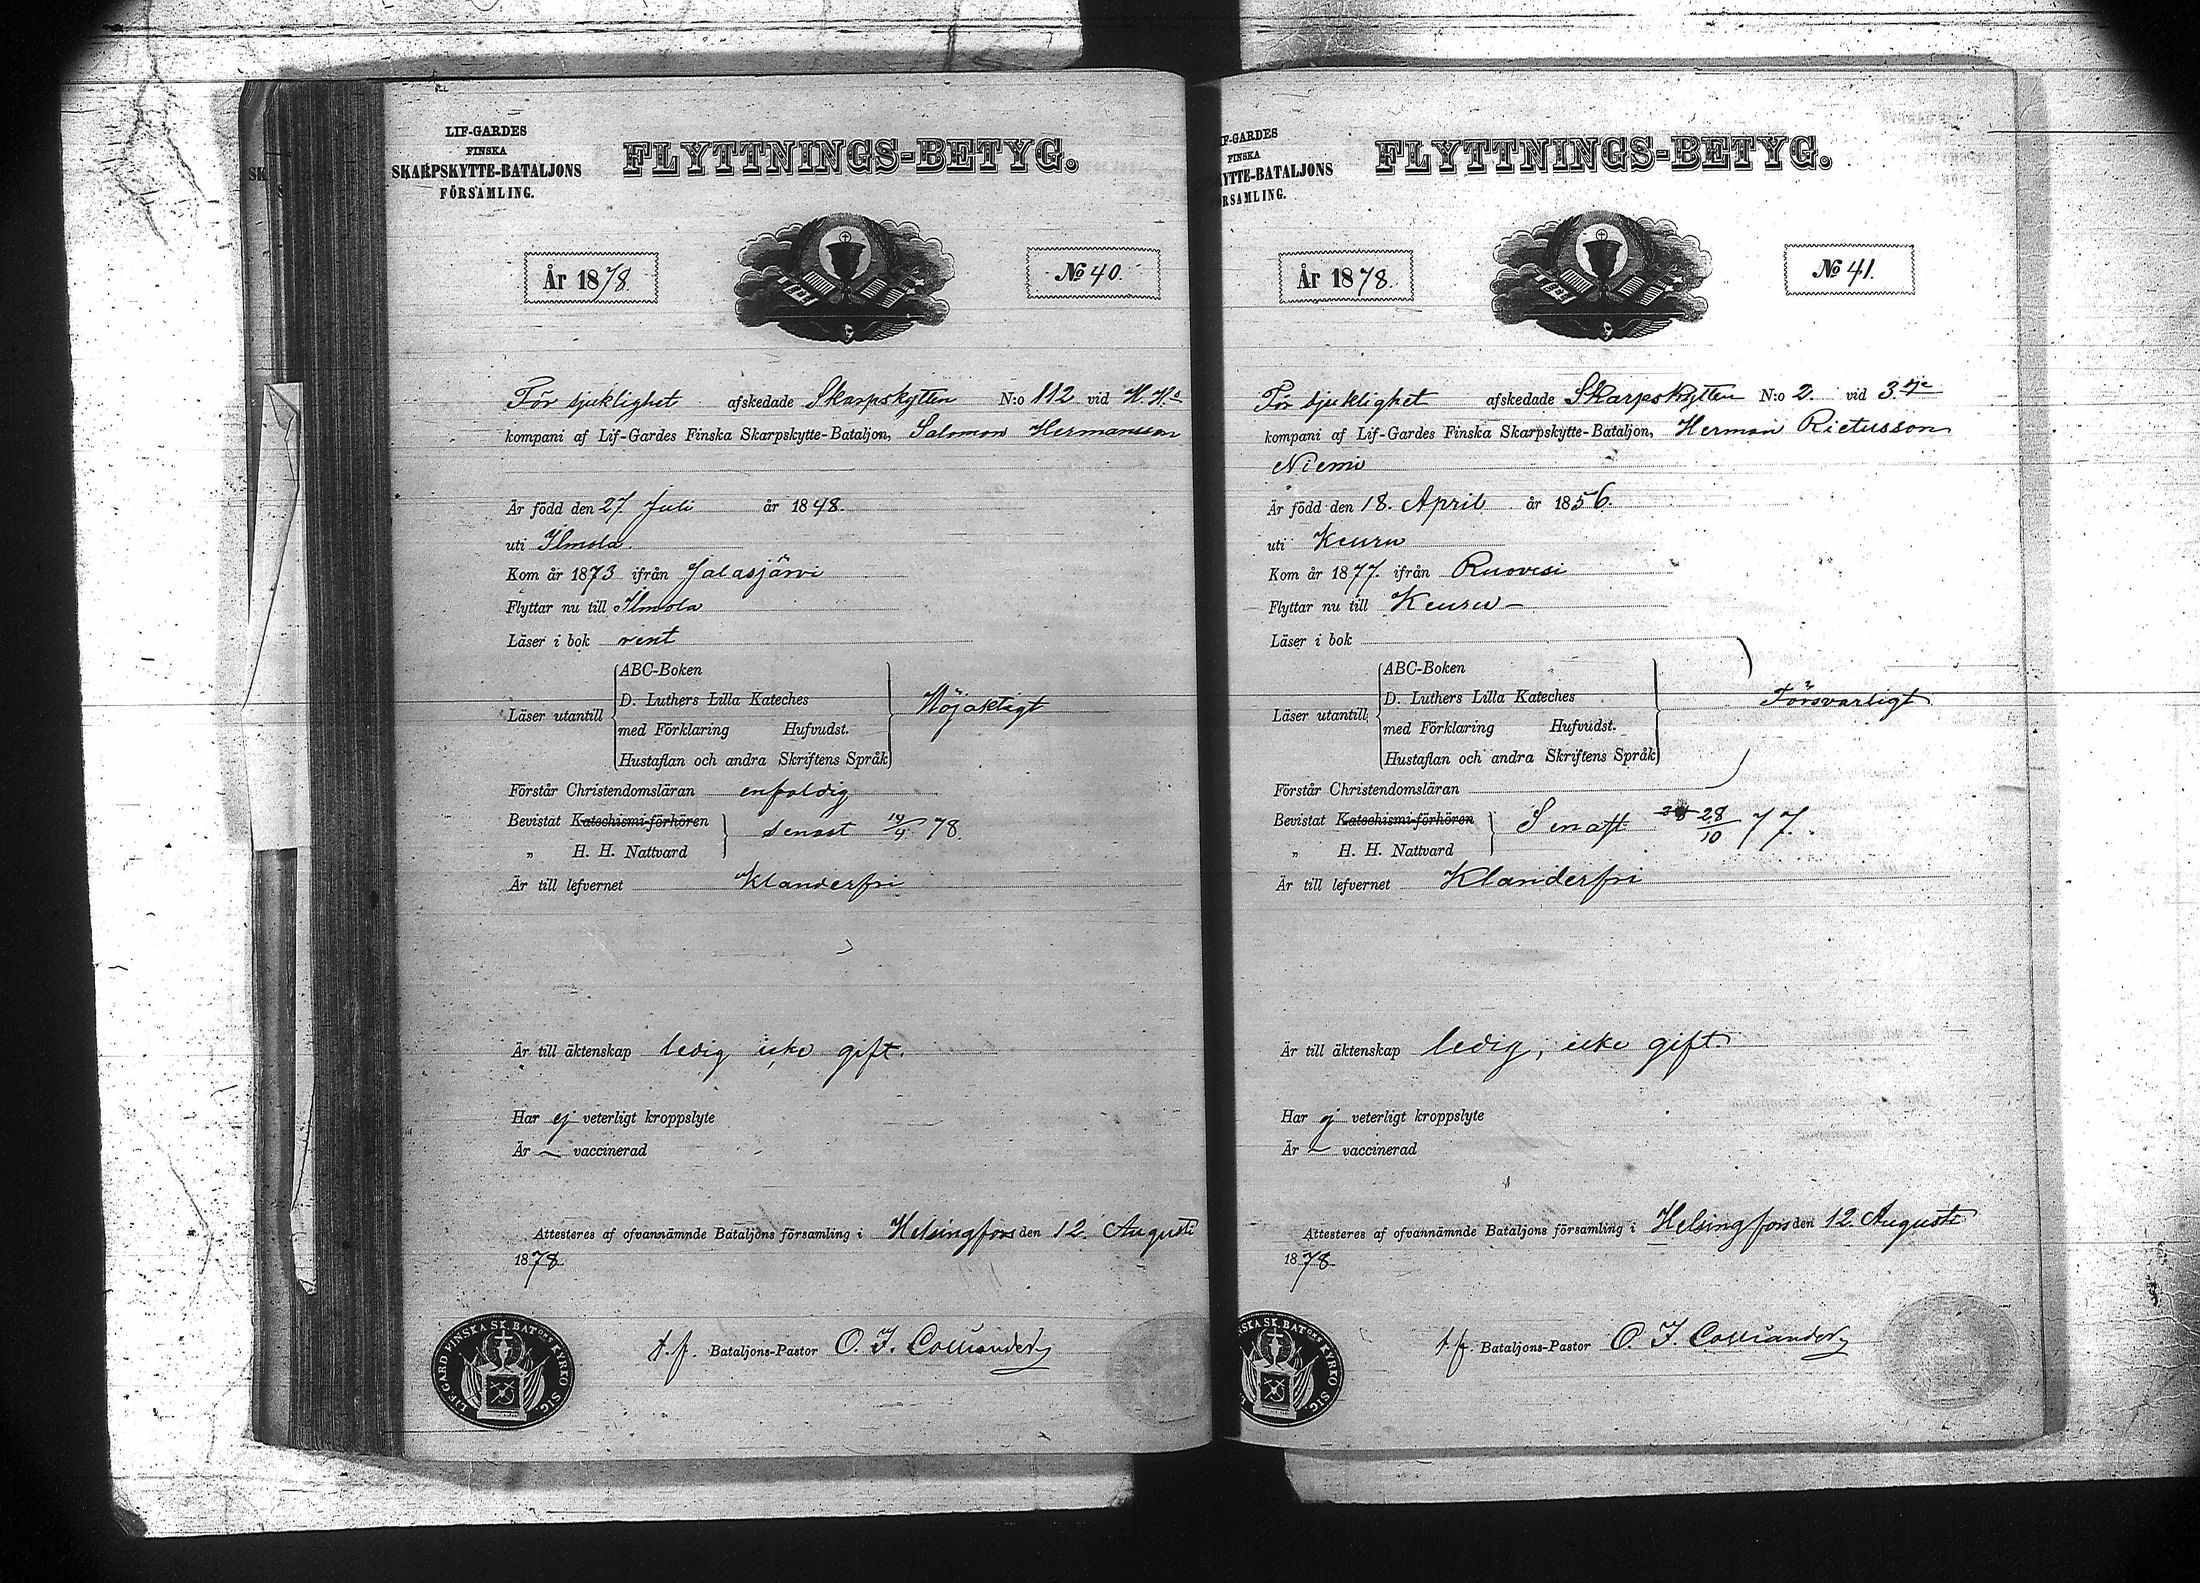 LIF-GARDES
FINSKA
SKARPSKYTTE-BATALJONS
FÖRSAMLING.
FLYTTNINGS-BETYG.
År 1878.
No 40.
För sjuklighet afskedade Skarpskytten N:o 112 vid
kompani af Lif-Gardes Finska Skarpskytte-Bataljon, Salomon Hermansson
Är född den 27 Juli år 1848.
uti Ilmola
Kom år 1873 ifrån Jalasjärvi
Flyttar nu till Ilmola
Läser i bok rent
Läser utantill
ABC-Boken
D. Luthers Lilla Kateches
med Förklaring Hufvudst.
Hustaflan och andra Skriftens Språk
Nöjaktigt
Förstår Christendomsläran enfaldig
Bevistat Katechismi-förhören
„ H. H. Nattvard
senast 14/4 78.
Är till lefvernet Klanderfri
Är till äktenskap ledig icke gift.
Har ej veterligt kroppslyte
Är — vaccinerad
Attesteres af ofvannämnde Bataljons församling i Helsingfors den 12. Augusti
1878.
t.f. Bataljons-Pastor O. I. Colliander
LIF-GARD FINSKA SK. BATONS KYRKO SIG.
F-GARDES
FINSKA
YTTE-BATALJONS
RSAMLING.
FLYTTNINGS-BETYG.
År 1878.
No 41.
För sjuklighet afskedade Skarpskytten N:o 2. vid 3dje
kompani af Lif-Gardes Finska Skarpskytte-Bataljon, Herman Rietusson
Niemi
Är född den 18. April år 1856.
uti Keuru
Kom år 1877. ifrån Ruovesi
Flyttar nu till Keuru —
Läser i bok
Läser utantill
ABC-Boken
D. Luthers Lilla Kateches
med Förklaring Hufvudst.
Hustaflan och andra Skriftens Språk
Försvarligt
Förstår Christendomsläran
Bevistat Katechismi-förhören
„ H. H. Nattvard
Senast 28/10 77.
Är till lefvernet Klanderfri
Är till äktenskap ledig, icke gift
Har ej veterligt kroppslyte
Är — vaccinerad
Attesteres af ofvannämnde Bataljons församling i Helsingfors den 12. Augusti
1878.
t.f. Bataljons-Pastor O. I. Colliander
NSKA SK. BATONS KYRKO SIG.